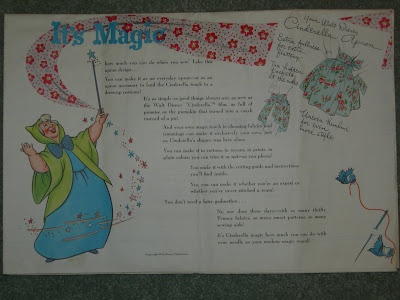 It's Magic
Your Walt Disney
Cinderella Apron
Extra fullness
for extra
flattery
Two hidden
pockets
at the side
for even
more style
how much you can do when you sew! Take this
apron design . . .
You can make it as an everyday apron—or as an
apron accessory to lend the Cinderella touch to a
dress-up costume!
It's as simple as good things always are: as new as
the Walt Disney "Cinderella" film, as full of
promise as the pumpkin that turned into a coach
instead of a pie.
And your own magic touch in choosing fabrics and
trimmings can make it exclusively your own, just
as Cinderella's slipper was hers alone.
You can make it in cottons, in rayons, in prints, in
plain colors; you can trim it or not—as you please!
You make it with the cutting guide and instructions
you'll find inside.
Yes, you can make it whether you're an expert or
whether you've never stitched a seam!
You don't need a fairy godmother . . .
No one does these days—with so many thrifty
Penney fabrics, so many smart patterns, so many
sewing aids!
It's Cinderella magic how much you can do with
your needle as your modern magic wand!